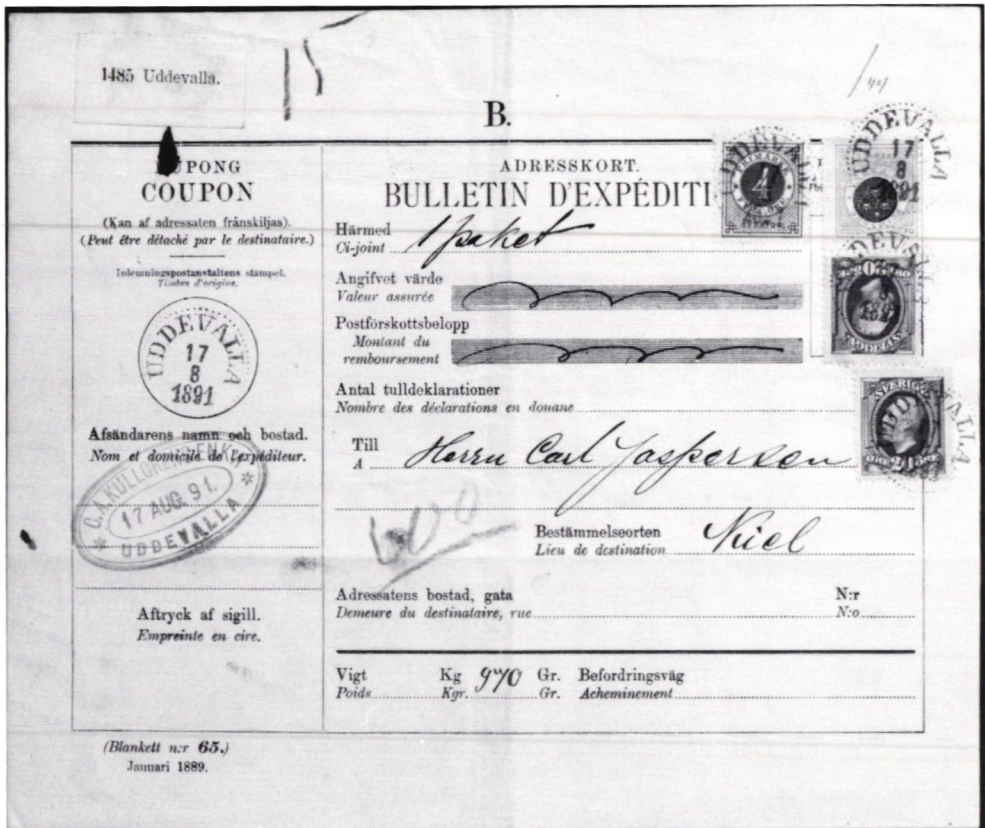 1485 Uddevalla.
B.
UPONG
COUPON
(Kan af adressaten frånskiljas).
(Peut être détaché par le destinataire.)
Inlemningspostanstaltens stämpel.
Timbre d'origine.
UDDEVALLA
17
8
1891
Afsändarens namn och bostad.
Nom et domicile de l'expéditeur.
C.A. KULLGRENS ENKA
17 AUG. 91.
* UDDEVALLA *
Aftryck af sigill.
Empreinte en cire.
(Blankett n:r 65.)
Januari 1889.
ADRESSKORT.
BULLETIN D'EXPÉDITI
Härmed
Ci-joint 1 paket
Angifvet värde
Valeur assurée
Postförskottsbelopp
Montant du
remboursement
Antal tulldeklarationer
Nombre des déclarations en douane
Till
A Herrn Carl Jaspersen
Bestämmelseorten
Lieu de destination Kiel
Adressatens bostad, gata N:r
Demeure du destinataire, rue N:o
Vigt Kg 970 Gr. Befordringsväg
Poids Kgr. Gr. Acheminement
UDDEVALLA
4
UDDEVALLA
17
8
1891
UDDEVALLA
20
SVERIGE
UDDEVALLA
SVERIGE
ÖRE 20 ÖRE